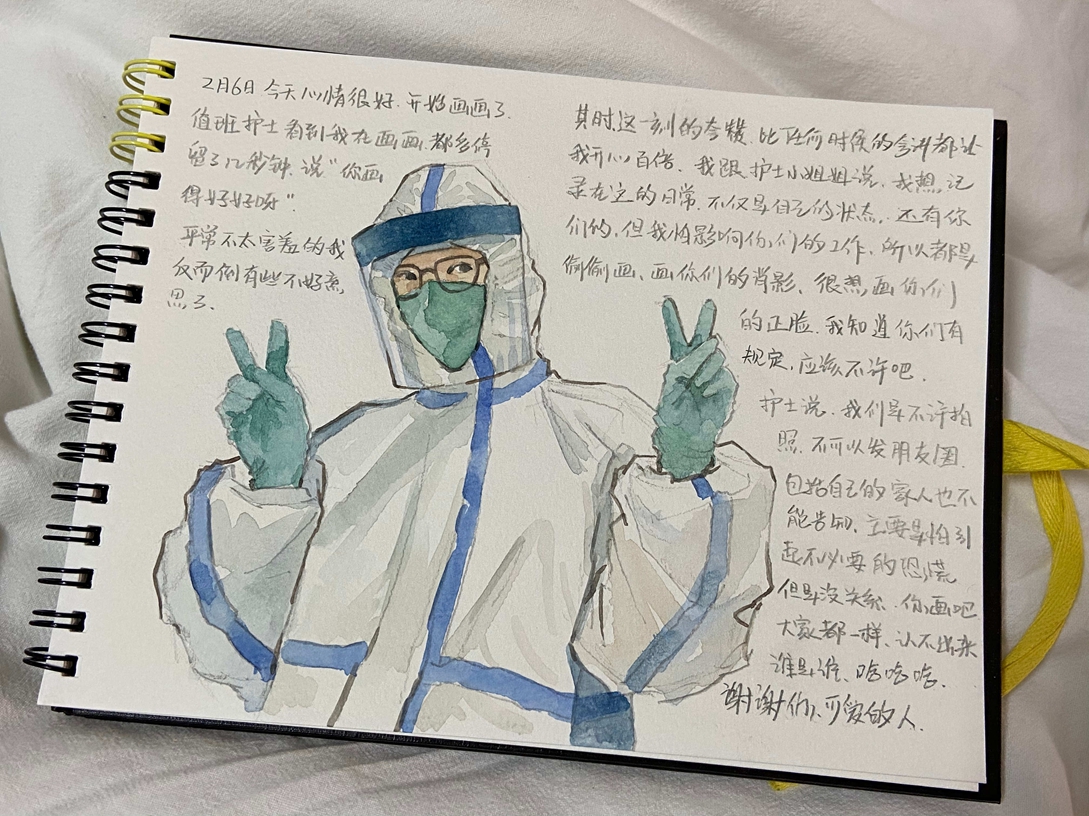 2月6日 今天心情很好.开始画画了.
值班护士看到我在画画.都多停
留了几秒钟.说“你画
得好好呀”.
平常不太害羞的我
反而倒有些不好意
思了.
其时.这一刻的夸赞.比任何时候的夸讲都让
我开心百倍.我跟护士小姐姐说.我想记
录在这的日常.不仅是自己的状态.还有你
们的.但我怕影响你们的工作.所以都是
偷偷画.画你们的背影.很想画你们
的正脸.我知道你们有
规定.应该不许吧.
护士说.我们是不许拍
照.不可以发朋友圈.
包括自己的家人也不
能告知.主要是怕引
起不必要的恐慌
但是没关系.你画吧
大家都一样.认不出来
谁是谁.哈哈哈.
谢谢你们.可爱的人.